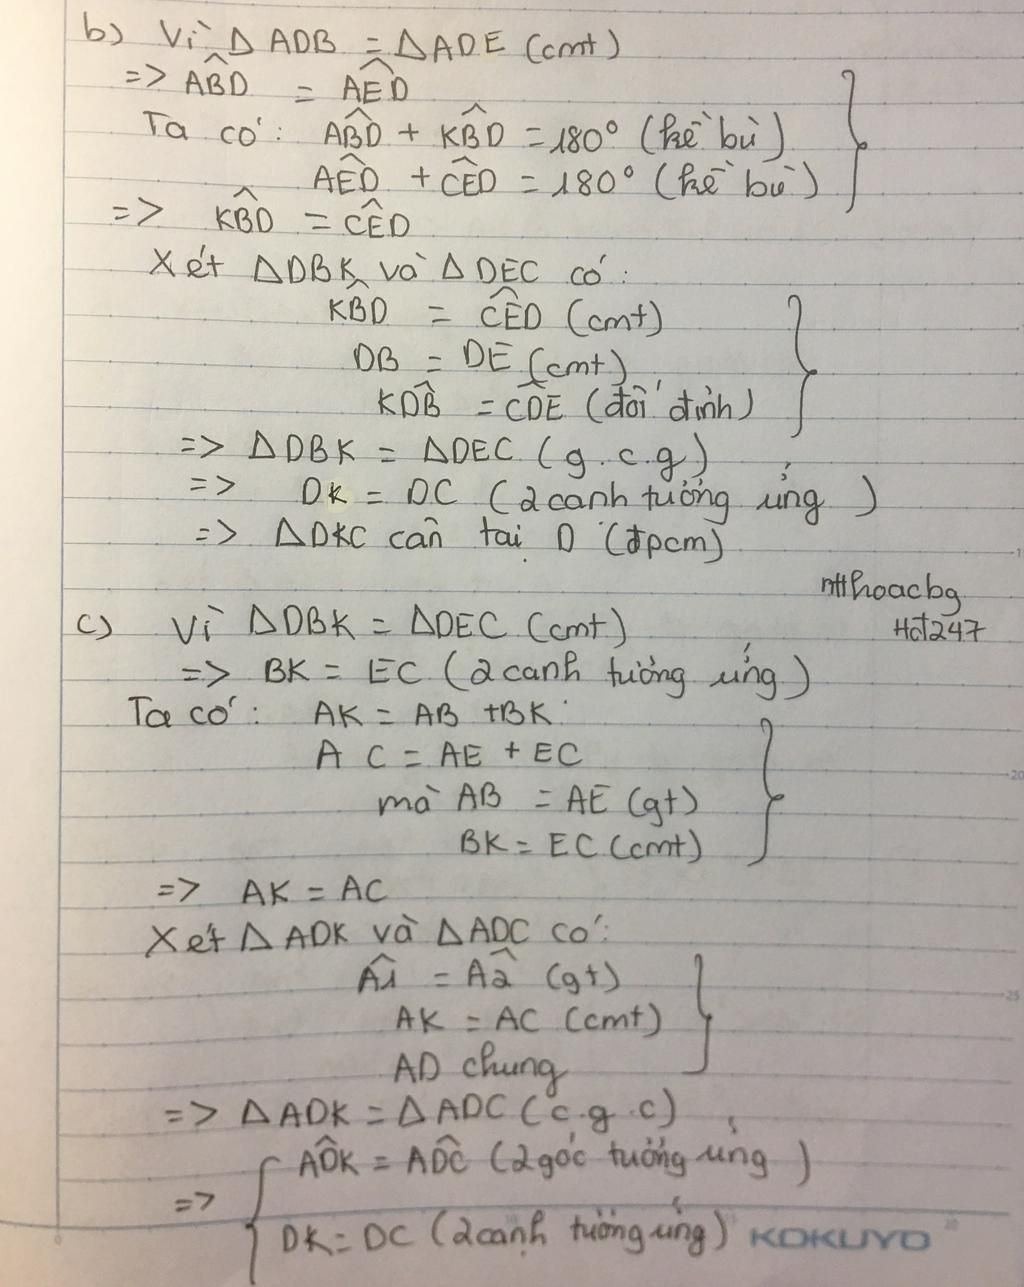 b) Vì Δ ADB = Δ ADE (cmt)
=> ABD̂ = AED̂
Ta có: ABD̂ + KBD̂ = 180° (kề bù)
AED̂ + CED̂ = 180° (kề bù)
=> KBD̂ = CED̂
Xét ΔDBK và Δ DEC có:
KBD̂ = CED̂ (cmt)
DB = DE (cmt)
KDB̂ = CDÊ (đối đỉnh)
=> ΔDBK = ΔDEC (g.c.g)
=> DK = DC (2 cạnh tương ứng)
=> ΔDKC cân tại D (đpcm)
ntthoacbg
Hđ247
c) Vì ΔDBK = ΔDEC (cmt)
=> BK = EC (2 cạnh tương ứng)
Ta có: AK = AB + BK
AC = AE + EC
mà AB = AE (gt)
BK = EC (cmt)
=> AK = AC
Xét Δ ADK và Δ ADC có:
Â1 = Â2 (gt)
AK = AC (cmt)
AD chung
=> Δ ADK = Δ ADC (c.g.c)
ADK̂ = ADĈ (2 góc tương ứng)
=>
DK = DC (2 cạnh tương ứng) KOKUYO